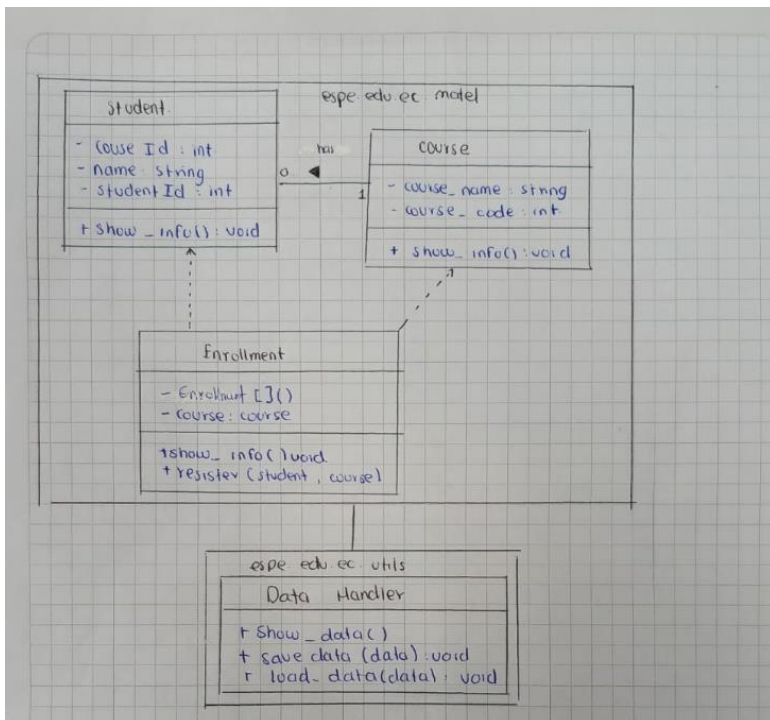 espe.edu.ec.matel
Student.
- Couse Id : int
- name : string
- student Id : int
+ show_info() : void
has
0
1
course
- course_name : string
- course_code : int
+ show_info() : void
Enrollment
- Enrollment []()
- course : course
+show_info() void
+ resister (student, course)
espe edu.ec.utils
Data Handler
+ show_data()
+ save data (data) : void
+ load_data(data) : void